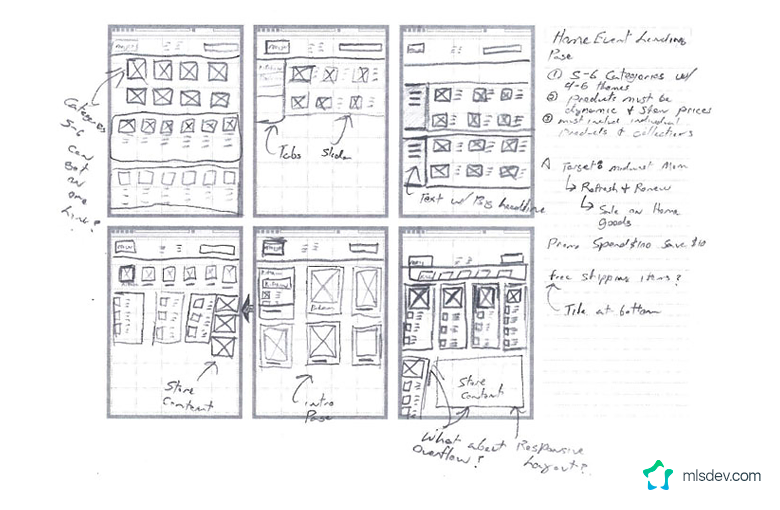 Home Event Landing
Page
① 5-6 Categories w/
4-6 themes
② products must be
dynamic & show prices
③ must include individual
products & collections
Target: midwest Mom
Refresh & Renew
Sale on Home
goods
Promo Spend $100 Save $10
free shipping items?
Tile at bottom
Categories
5-6
can
on
one
line?
Tabs
Slider
Text w/ Big headline
Store
Content
intro
Page
Store
Content
What about
Overflow?
Responsive
Layout?
mlsdev.com